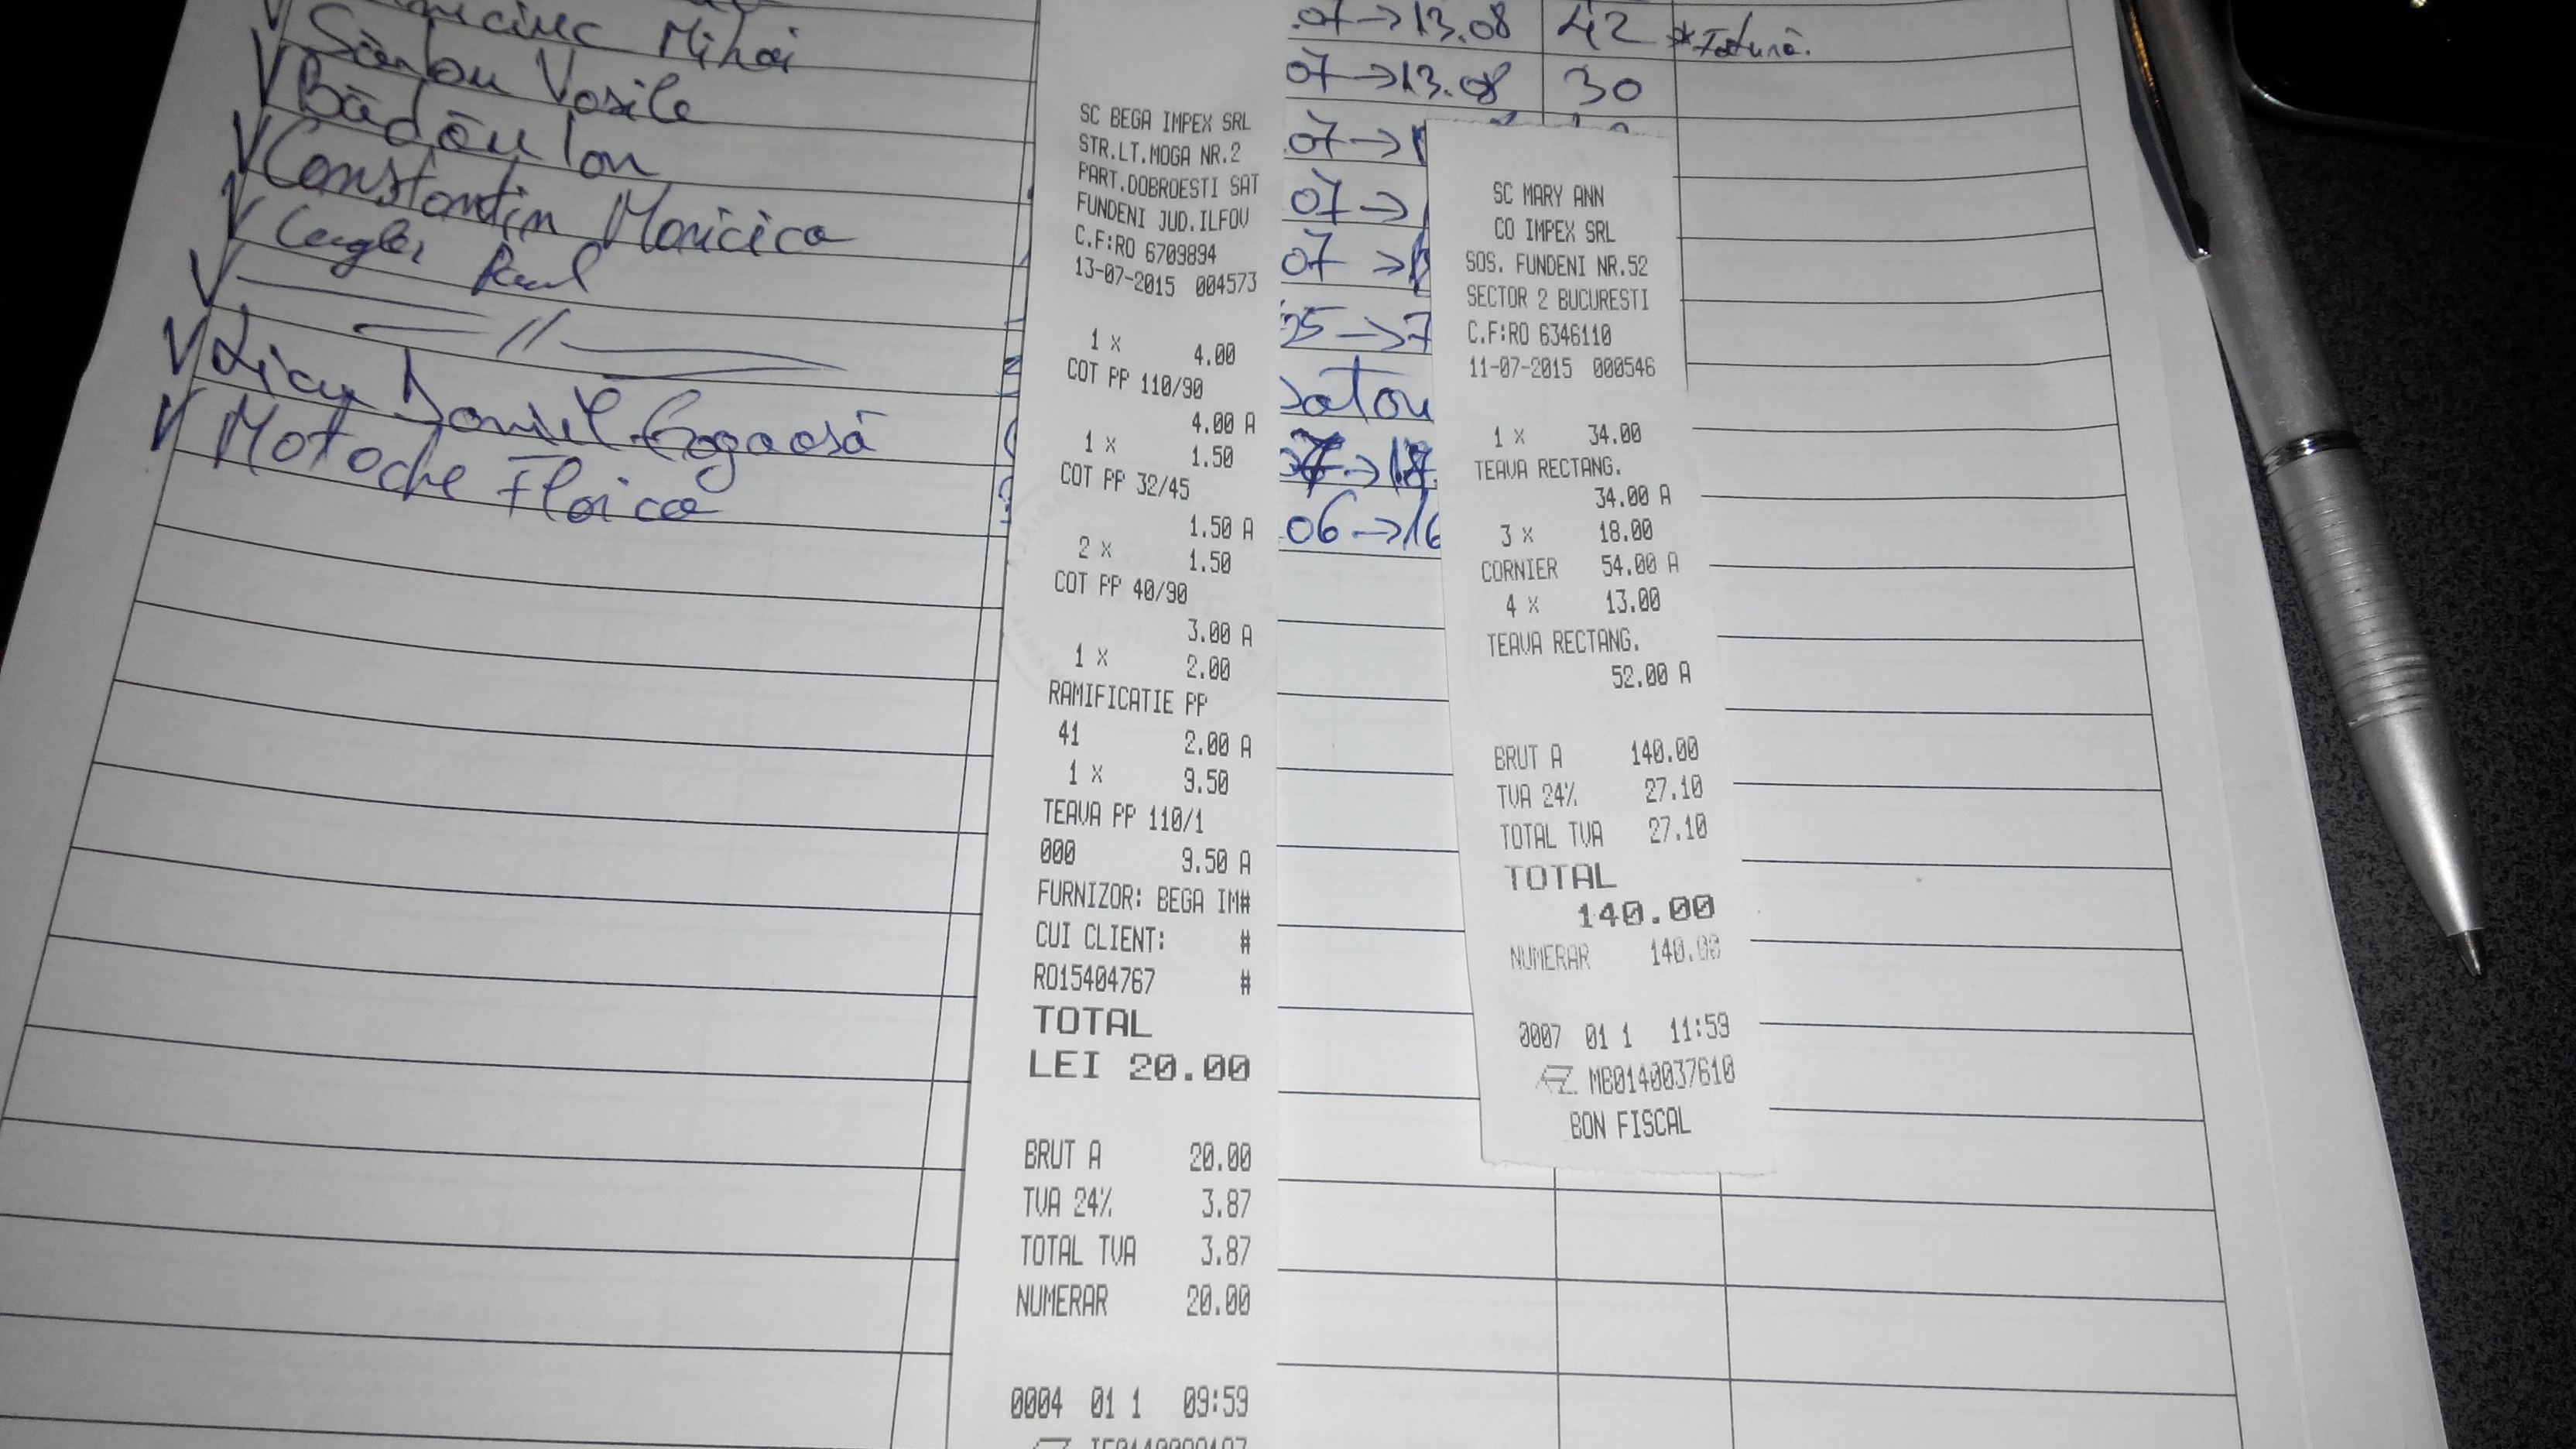 Mihai
Vasile
Bădău Ion
Constantin Maricica
Paul
— // —
Daniel Gogoașă
Motoche Florica
.07 → 13.08 42
07 → 13.08 30
07 →
07 →
07 →
05 → 7
06 → 16
SC BEGA IMPEX SRL
STR.LT.MOGA NR.2
PART.DOBROESTI SAT
FUNDENI JUD.ILFOV
C.F:RO 6709894
13-07-2015 004573
1 x 4.00
COT PP 110/90
4.00 A
1 x 1.50
COT PP 32/45
1.50 A
2 x 1.50
COT PP 40/90
3.00 A
1 x 2.00
RAMIFICATIE PP
41 2.00 A
1 x 9.50
TEAVA PP 110/1
000 9.50 A
FURNIZOR: BEGA IM#
CUI CLIENT: #
RO15404767 #
TOTAL
LEI 20.00
BRUT A 20.00
TVA 24% 3.87
TOTAL TVA 3.87
NUMERAR 20.00
0004 01 1 09:59
SC MARY ANN
CO IMPEX SRL
SOS. FUNDENI NR.52
SECTOR 2 BUCURESTI
C.F:RO 6346110
11-07-2015 000546
1 x 34.00
TEAVA RECTANG.
34.00 A
3 x 18.00
CORNIER 54.00 A
4 x 13.00
TEAVA RECTANG.
52.00 A
BRUT A 140.00
TVA 24% 27.10
TOTAL TVA 27.10
TOTAL
140.00
NUMERAR 140.00
0007 01 1 11:59
MB0140037610
BON FISCAL